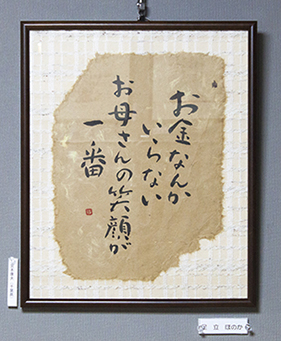 お金なんか
いらない
お母さんの笑顔が
一番
足立 ほのか